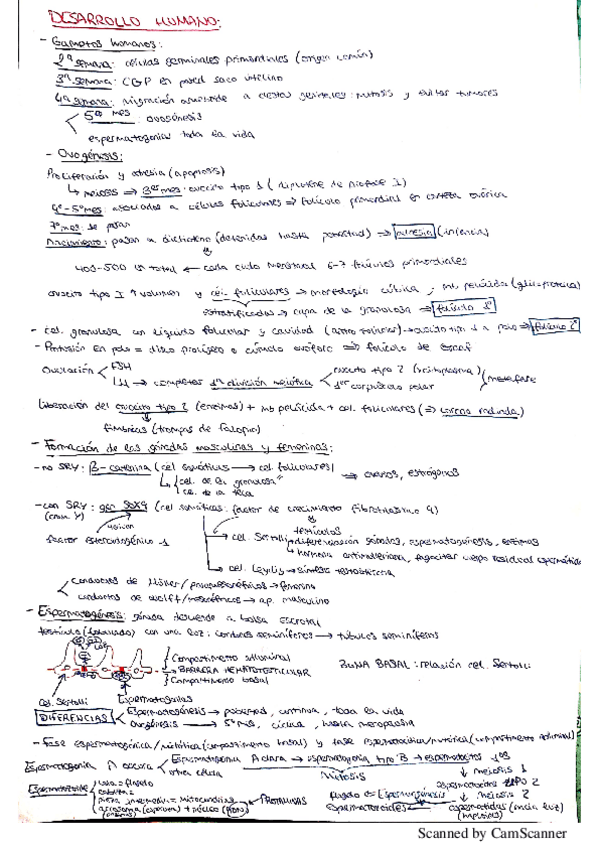 DESARROLLO HUMANO:
- Gametos humanos:
2ª semana: células germinales primordiales (origen común)
3ª semana: CGP en pared saco vitelino
4ª semana: migración a crestas genitales: mitosis y evitar tumores
5º mes: ovogénesis
espermatogonias toda la vida
- Ovogénesis:
Proliferación y atresia (apoptosis)
↳ meiosis ⇒ 3er mes: ovocito tipo 1 (diplotene de profase I)
4º-5º mes: asociados a células foliculares ⇒ folículo primordial en corteza ovárica
7º mes: se paran
Nacimiento: pasan a dictioteno (detenidas hasta pubertad) ⇒ atresia (infancia)
400-500 en total ← cada ciclo menstrual 6-7 folículos primordiales
ovocito tipo I ↑ volumen y cél. foliculares → morfología cúbica, mb pelúcida (glucoproteína)
estratificados → capa de la granulosa ⇒ folículo 1º
- Cel. granulosa con líquido folicular y cavidad (antro folicular) → ovocito tipo 1 a polo ⇒ folículo 2º
- Protusión en polo = disco prolígero o cúmulo ovóforo ⇒ folículo de Graaf
Ovulación < FSH
LH → completar 1ª división meiótica < ovocito tipo 2 (citoplasma)
1er corpúsculo polar
metafase
Liberación del ovocito tipo 2 (enzimas) + mb pelúcida + cel. foliculares (⇒ corona radiada)
fimbrias (trompas de falopio)
- Formación de las gónadas masculinas y femeninas:
- no SRY: β-catenina (cel somáticas → cel. foliculares)
⇒ ovarios, estrógenos
↳ cel. de la granulosa
cel. de la teca
- con SRY: gen SOX9 (cel somáticas: factor de crecimiento fibroblástico 9)
(crom. Y)
testículos
factor esteroidogénico 1
cel. Sertoli → diferenciación gónadas, espermatogénesis, enzimas
hormona antimülleriana, fagocitar cuerpo residual espermátidas
cel. Leydig → síntesis testosterona
conductos de Müller/paramesonéfricos → femenino
conductos de Wolff/mesonéfricos → ap. masculino
- Espermatogénesis: gónada desciende a bolsa escrotal
testículo (tabicado) con una luz: cordones seminíferos → túbulos seminíferos
Compartimento adluminal
BARRERA HEMATOTESTICULAR
Compartimento basal
ZONA BASAL: relación cel. Sertoli
Cel. Sertoli
Espermatogonias
DIFERENCIAS < Espermatogénesis → pubertad, continua, toda la vida
Ovogénesis → 5º mes, cíclica, hasta menopausia
- Fase espermatogénica/mitótica (compartimento basal) y fase espermatocítica/meiótica (compartimento adluminal)
Espermatogonia A oscura < Espermatogonia A clara → espermatogonia tipo B → espermatocitos 1os
otra célula
Mitosis
↓ meiosis 1
espermatocitos tipo 2
↓ meiosis 2
Espermatozoide
cola = flagelo
pieza intermedia = mitocondrias
acrosoma
+ núcleo
PROTAMINAS
Espermiogénesis
espermatozoides
espermátidas (hacia luz)
(haploides)
Scanned by CamScanner